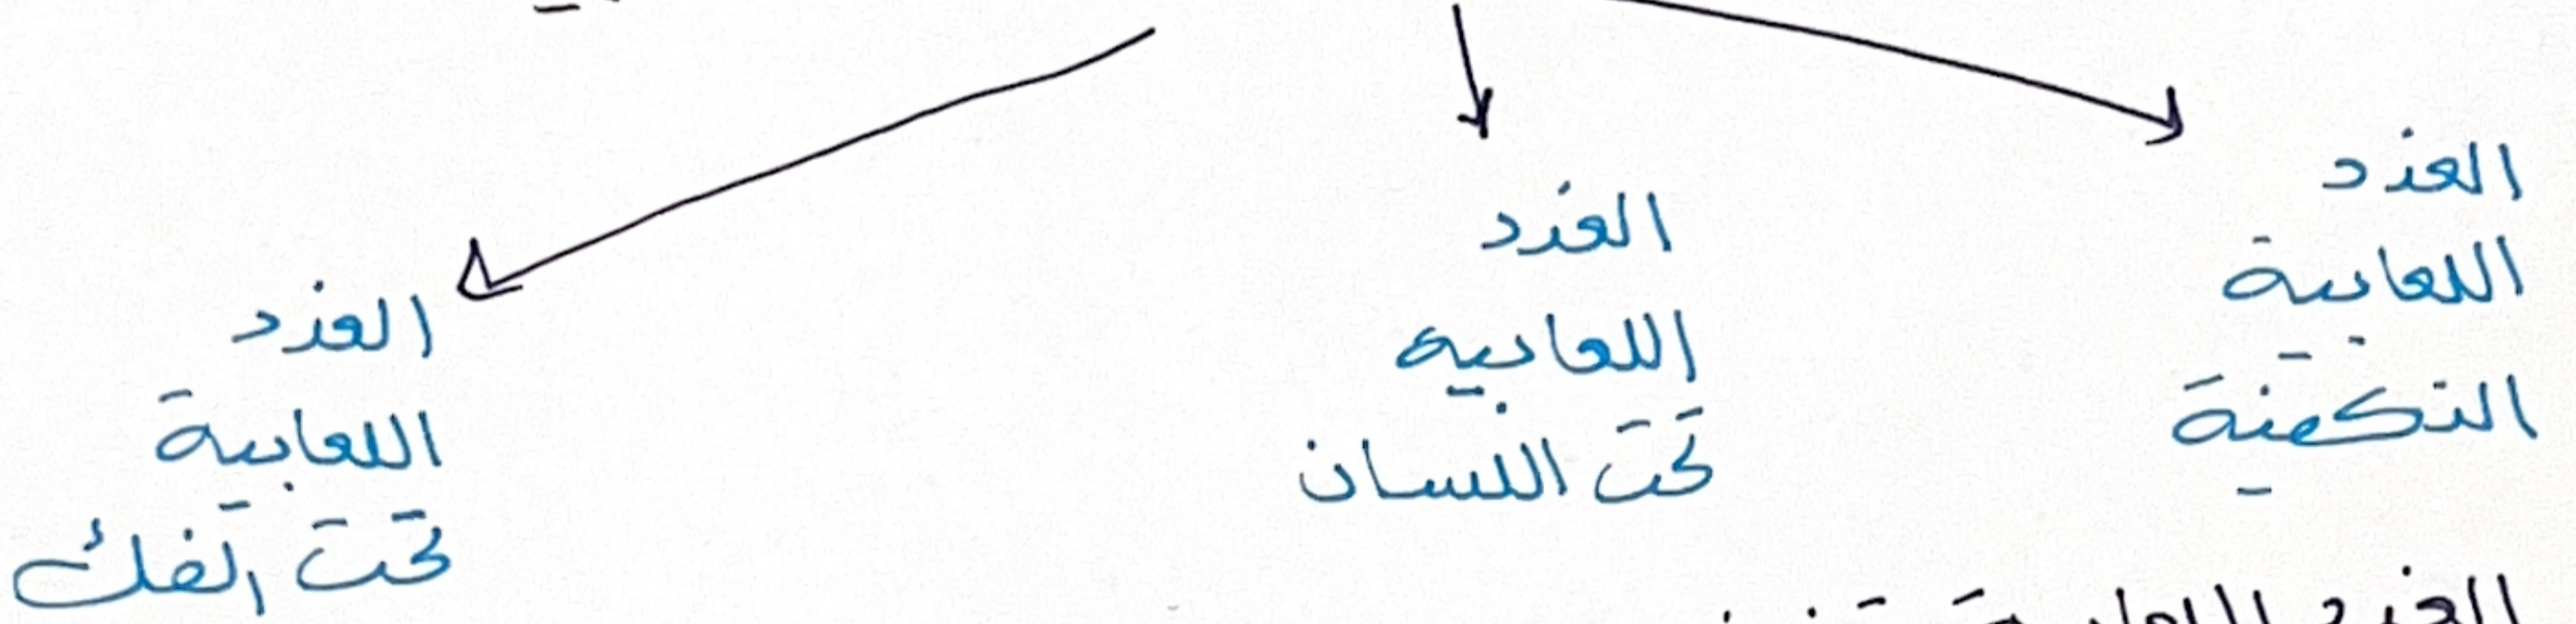 الغدد
اللعابية
النكفية
الغدد
اللعابيه
تحت اللسان
الغدد
اللعابية
تحت الفك
الغدد اللعابية